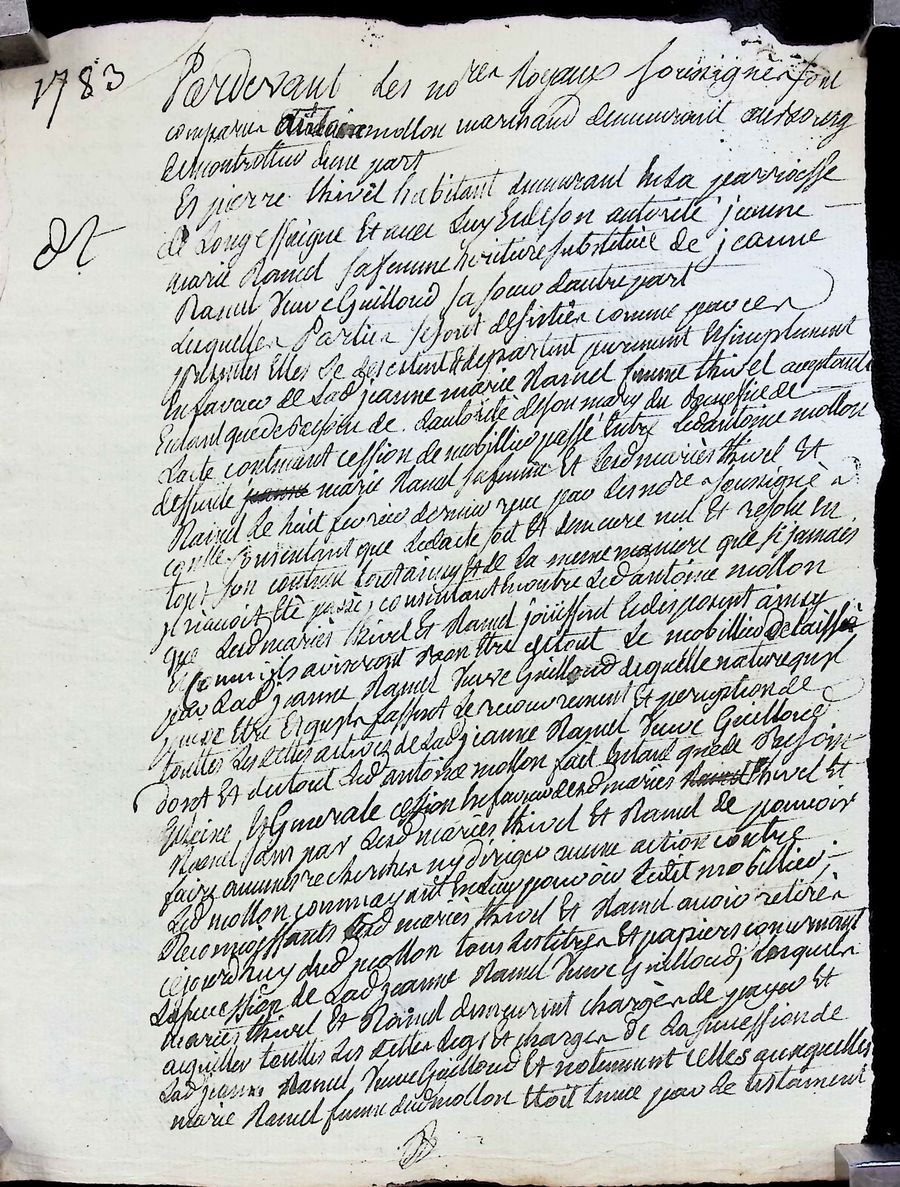 1783
Pardevant les no.res Royaux soussignés sont
comparu antoine mollon marchand demeurant au bourg
de montrottier d'une part
Et pierre thivel habitant demeurant en la parroisse
de Longessaigne Et avec Luy Et de son autorité jeanne
marie Ramel sa femme heritiere substituée de jeanne
Ramel Veuve Guilloud sa soeur d'autre part
Lesquelles Parties se sont desistées comme par ces
presentes Elles se desistent & departent purement Et simplement
En faveur de Lad jeanne marie Ramel femme thivel acceptante
Entant que de besoin de l'autorité de son mary du benefice de
L'acte contenant cession de mobillier passé Entre Led antoine mollon
marie Ramel sa femme Et Lesd mariés thivel Et
Ramel Le huit fevrier dernier reçu par Les no.res soussignés
consentant que Led acte soit Et demeure nul Et resolu en
tout son contenu tout ainsy & de La meme maniere que si jamais
jl n'avoit Eté passé, consentant En outre Led antoine mollon
que Lesd mariés thivel Et Ramel jouissent Et disposent ainsy
Et comme jls aviseront bon Etre de tout Le mobillier delaissé
par Lad jeanne Ramel Veuve Guilloud de quelle nature qu'jl
puisse Etre Et qu'jls fassent Le recouvrement Et perception de
touttes Les dettes actives de Lad jeanne Ramel Veuve Guilloud
dont Et du tout Led antoine mollon fait Entant que de besoin
Et Generale cession En faveur desd mariés thivel Et
Ramel sans par Lesd mariés thivel Et Ramel de pouvoir
faire aucunes recherches ny diriger aucune action contre
Led mollon comme ayant En Luy pouvoir Ledit mobillier
Reconnoissants Lesd mariés thivel Et Ramel avoir retirés
cejourd'huy dud mollon tous Les titres Et papiers concernant
La succession de Lad jeanne Ramel Veuve Guilloud, desquels
mariés thivel Et Ramel demeurent chargés de payer Et
aquiter touttes Les dettes Legs Et charges de La succession de
Lad jeanne Ramel Veuve Guilloud Et notament celles auxquelles
marie Ramel femme dud mollon Etoit tenue par Le testament